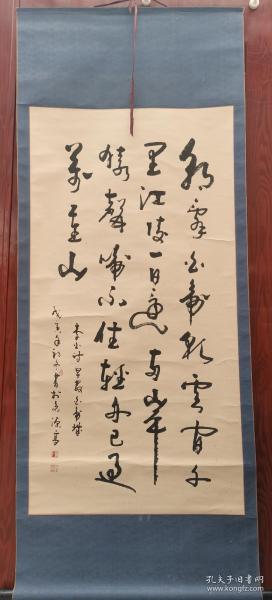 朝辞白帝彩云间千
里江陵一日还两岸
猿声啼不住轻舟已过
万重山
李白诗早发白帝城
孔夫子旧书网